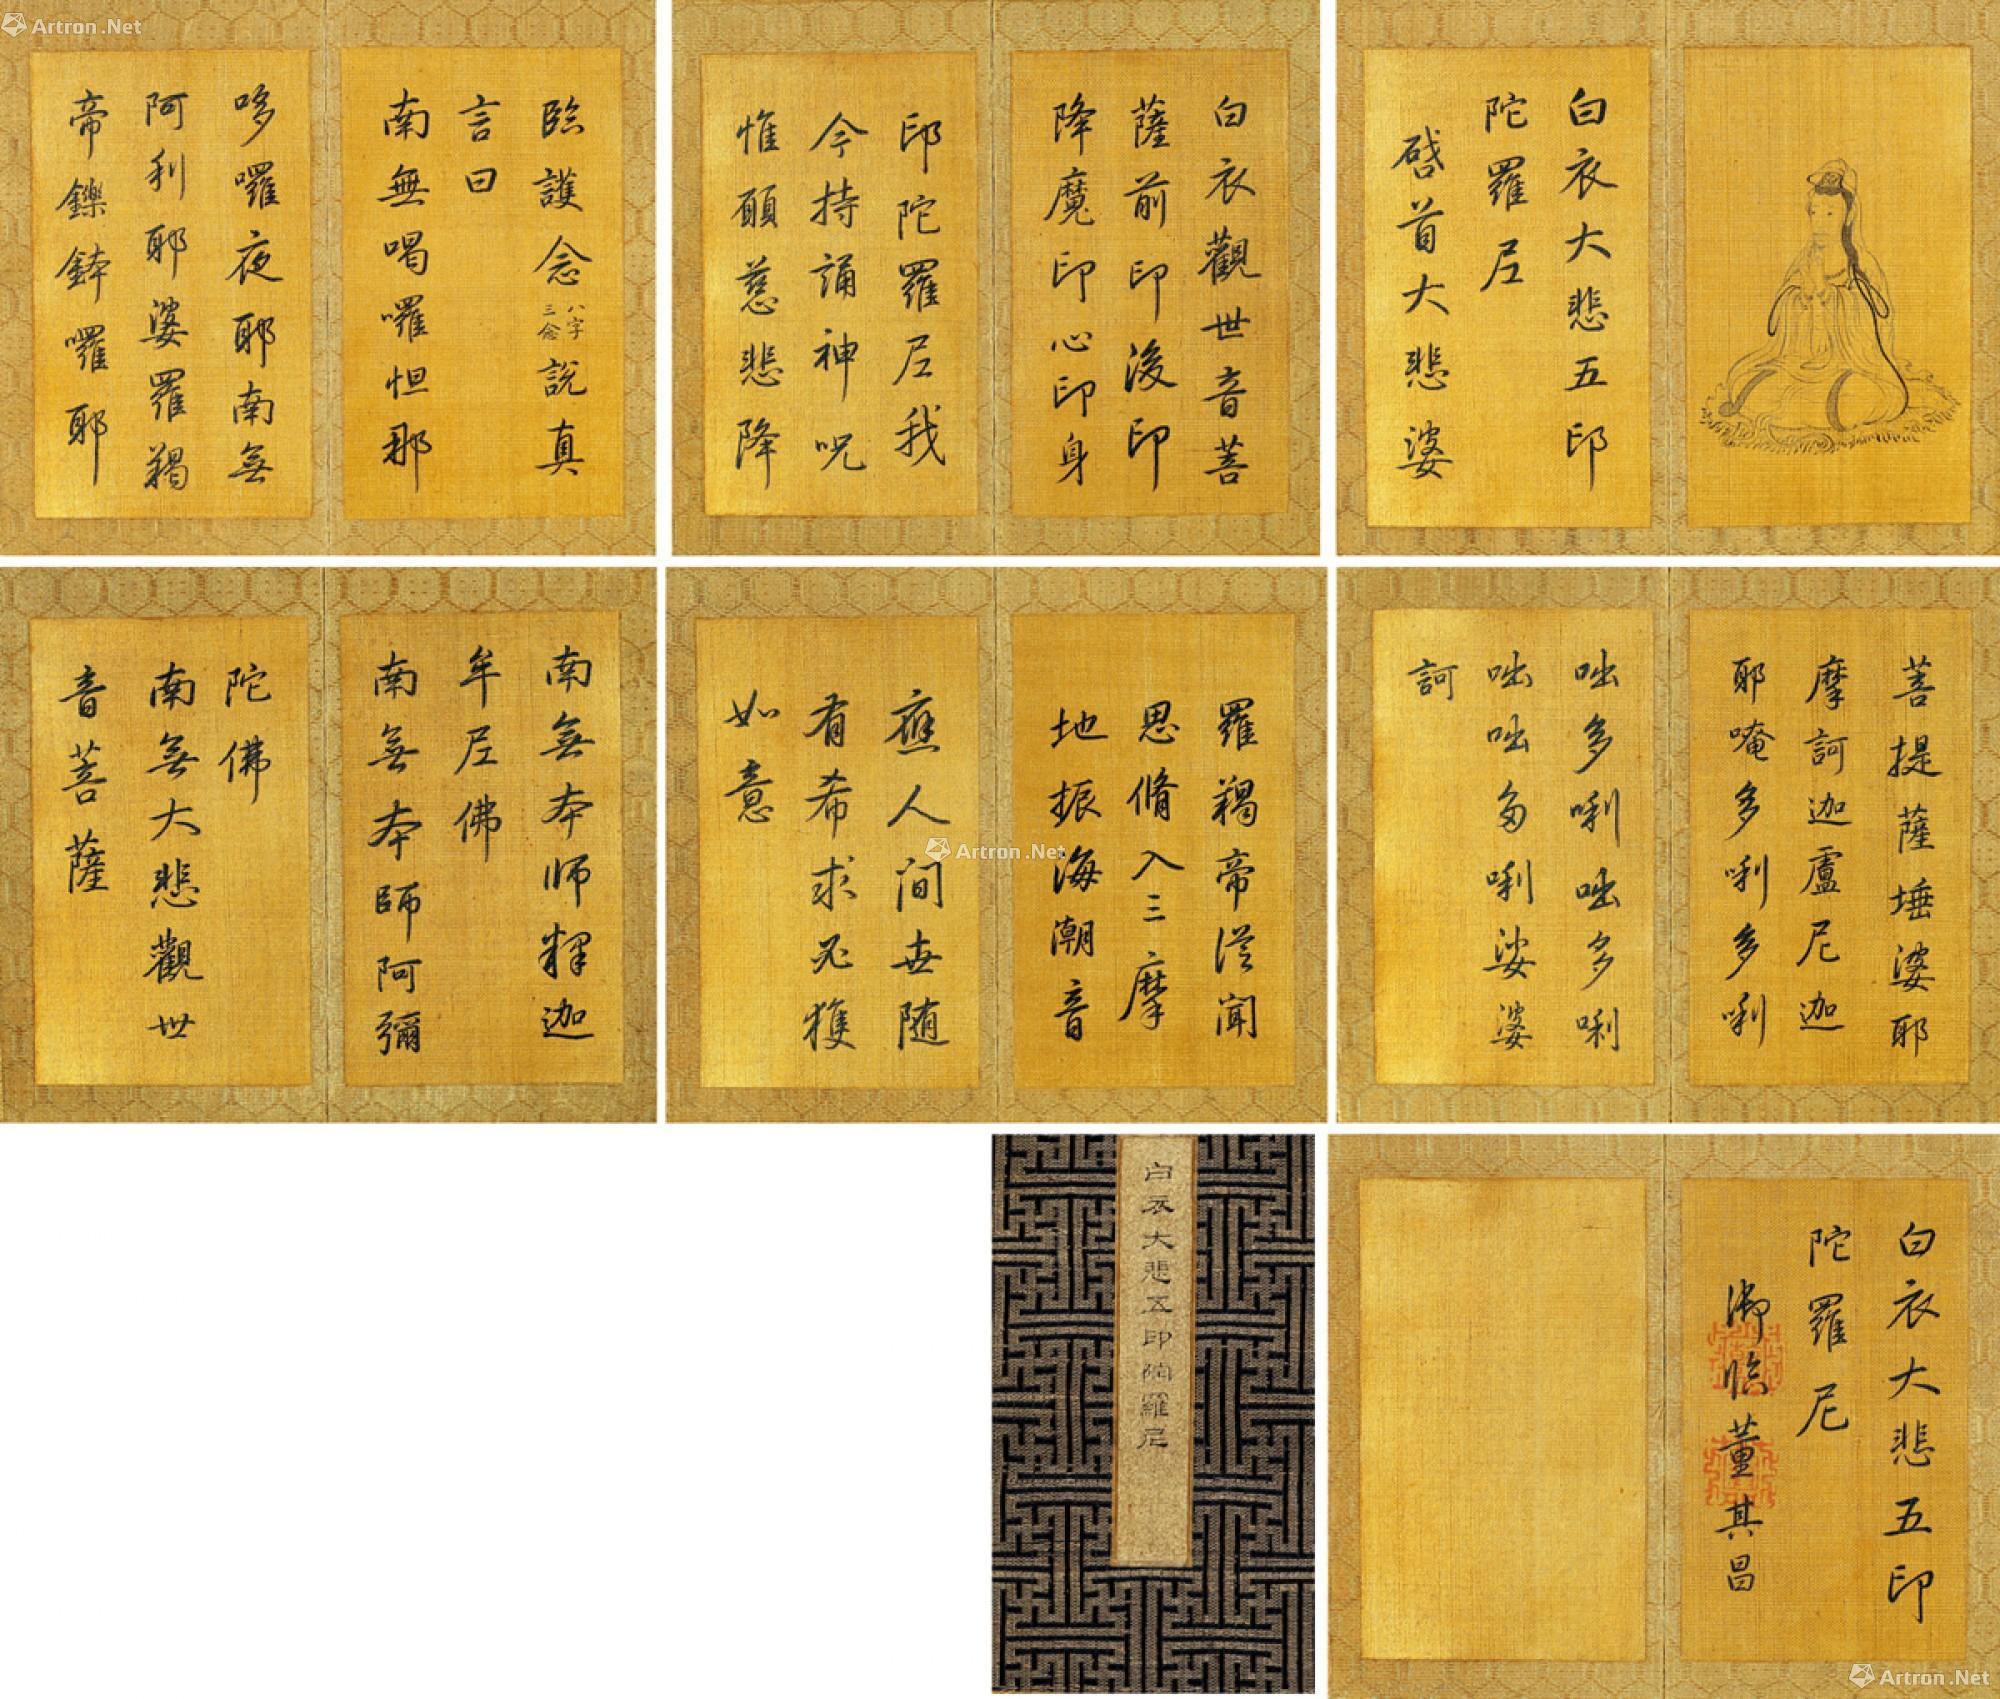 白衣大悲五印
陀羅尼
啓首大悲婆
白衣觀世音菩
薩前印後印
降魔印心印身
印陀羅尼我
今持誦神呪
惟願慈悲降
臨護念八字三念說真
言曰
南無喝囉怛那
哆囉夜耶南無
阿利耶婆羅羯
帝鑠鉢囉耶
菩提薩埵婆耶
摩訶迦盧尼迦
耶唵多唎多唎
咄多唎咄多唎
咄咄多唎娑婆
訶
羅羯帝從聞
思脩入三摩
地振海潮音
應人間世随
有希求必獲
如意
南無本師釋迦
牟尼佛
南無本師阿彌
陀佛
南無大悲觀世
音菩薩
白衣大悲五印
陀羅尼
御臨董其昌
白衣大悲五印陀羅尼
Artron.Net
Artron.Net
Artron.Net
Artron.Net
Artron.Net